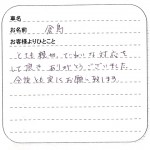 車名
お名前 金島
お客様よりひとこと
とても親切、ていねいな対応を
して頂き ありがとうございました。
今後とも宜しくお願い致します。